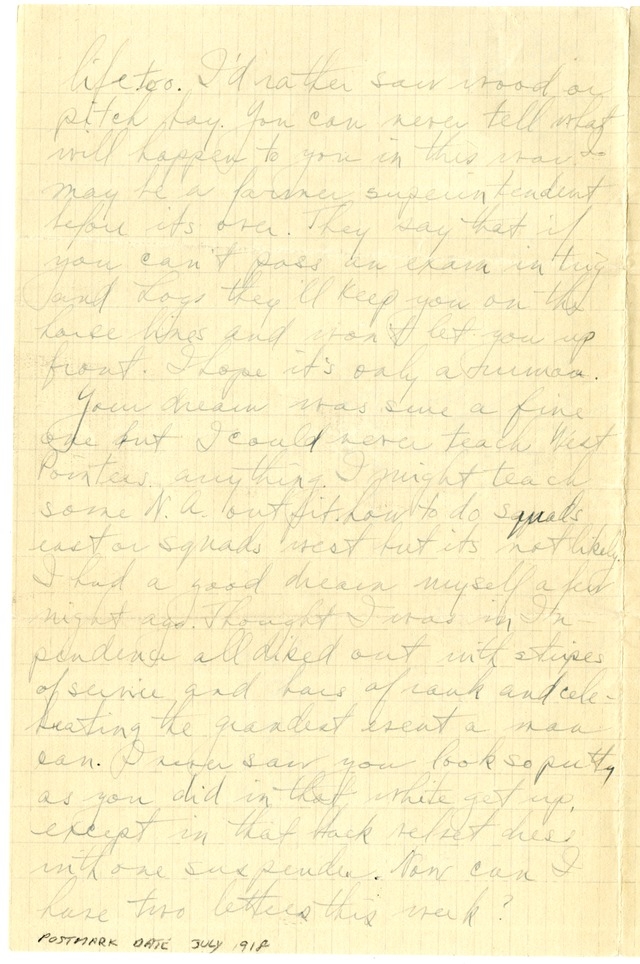 life too. I'd rather saw wood or
pitch hay. You can never tell what
will happen to you in this war. I
may be a farmer superintendent
before its over. They say that if
you can't pass an exam in
and Hogs they'll keep you on the
horse lines and won't let you up
front. I hope it's only a rumor.
Your dream was sure a fine
one but I could never teach West
Pointers anything. I might teach
some N.A. outfit how to do squads
east or squads west but its not likely.
I had a good dream myself a few
night ago. Thought I was in In-
pendence all diked out with stripes
of service and bars of rank and cele-
brating the grandest event a man
can. I never saw you look so putty
as you did in that white get up,
except in that black velvet dress
with one suspender. Now can I
have two letters this week?
POSTMARK DATE JULY 1918